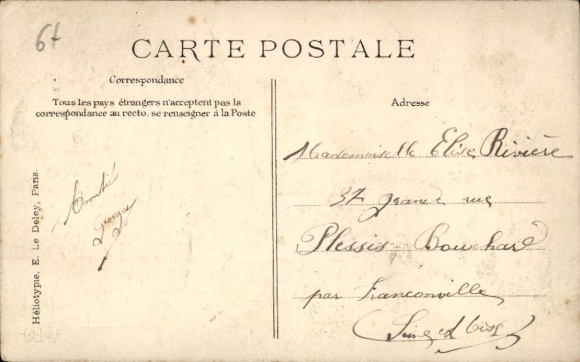 6f
CARTE POSTALE
Correspondance
Tous les pays étrangers n'acceptent pas la
correspondance au recto, se renseigner à la Poste
Amitié
Georges
Héliotypie, E. Le Deley, Paris.
Adresse
Mademoiselle Elise Rivière
37 grande rue
Plessis-Bouchard
par Franconville
Seine et Oise